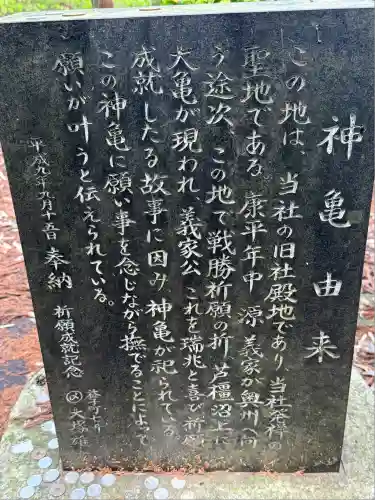 神亀由来
この地は、当社の旧社殿地であり、当社発祥の
聖地である。康平年中 源 義家が奥州へ向
う途次、この地で戦勝祈願の折、芦橿沼上に
大亀が現われ、義家公 これを瑞兆と喜び祈願
成就したる故事に因み、神亀が祀られている。
この神亀に願い事を念じながら撫でることによって
願いが叶うと伝えられている。
平成九年九月十五日 奉納 祈願成就記念
大塚雄